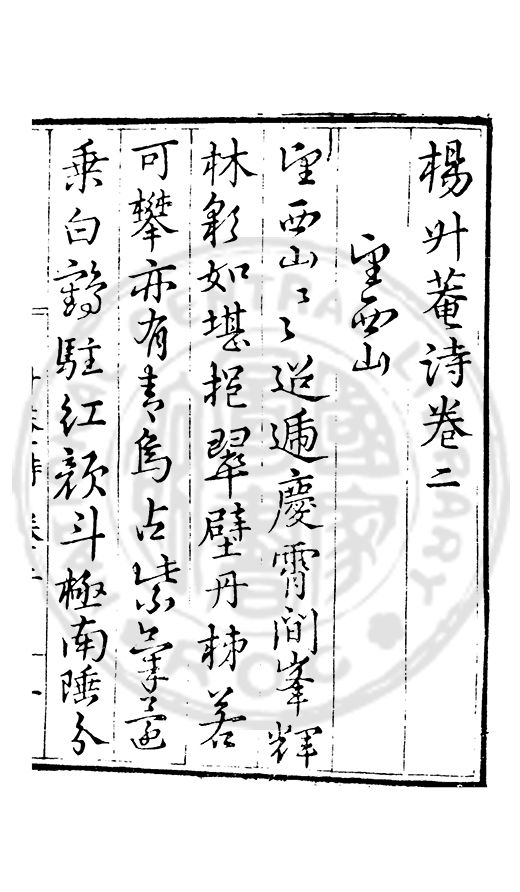 楊升菴詩卷二
望西山
望西山〻〻迢遞慶霄間峯輝
林彩如堪挹翠壁丹梯若
可攀亦有青鳥占紫氣還
乗白鶴駐紅顔斗極南陲分